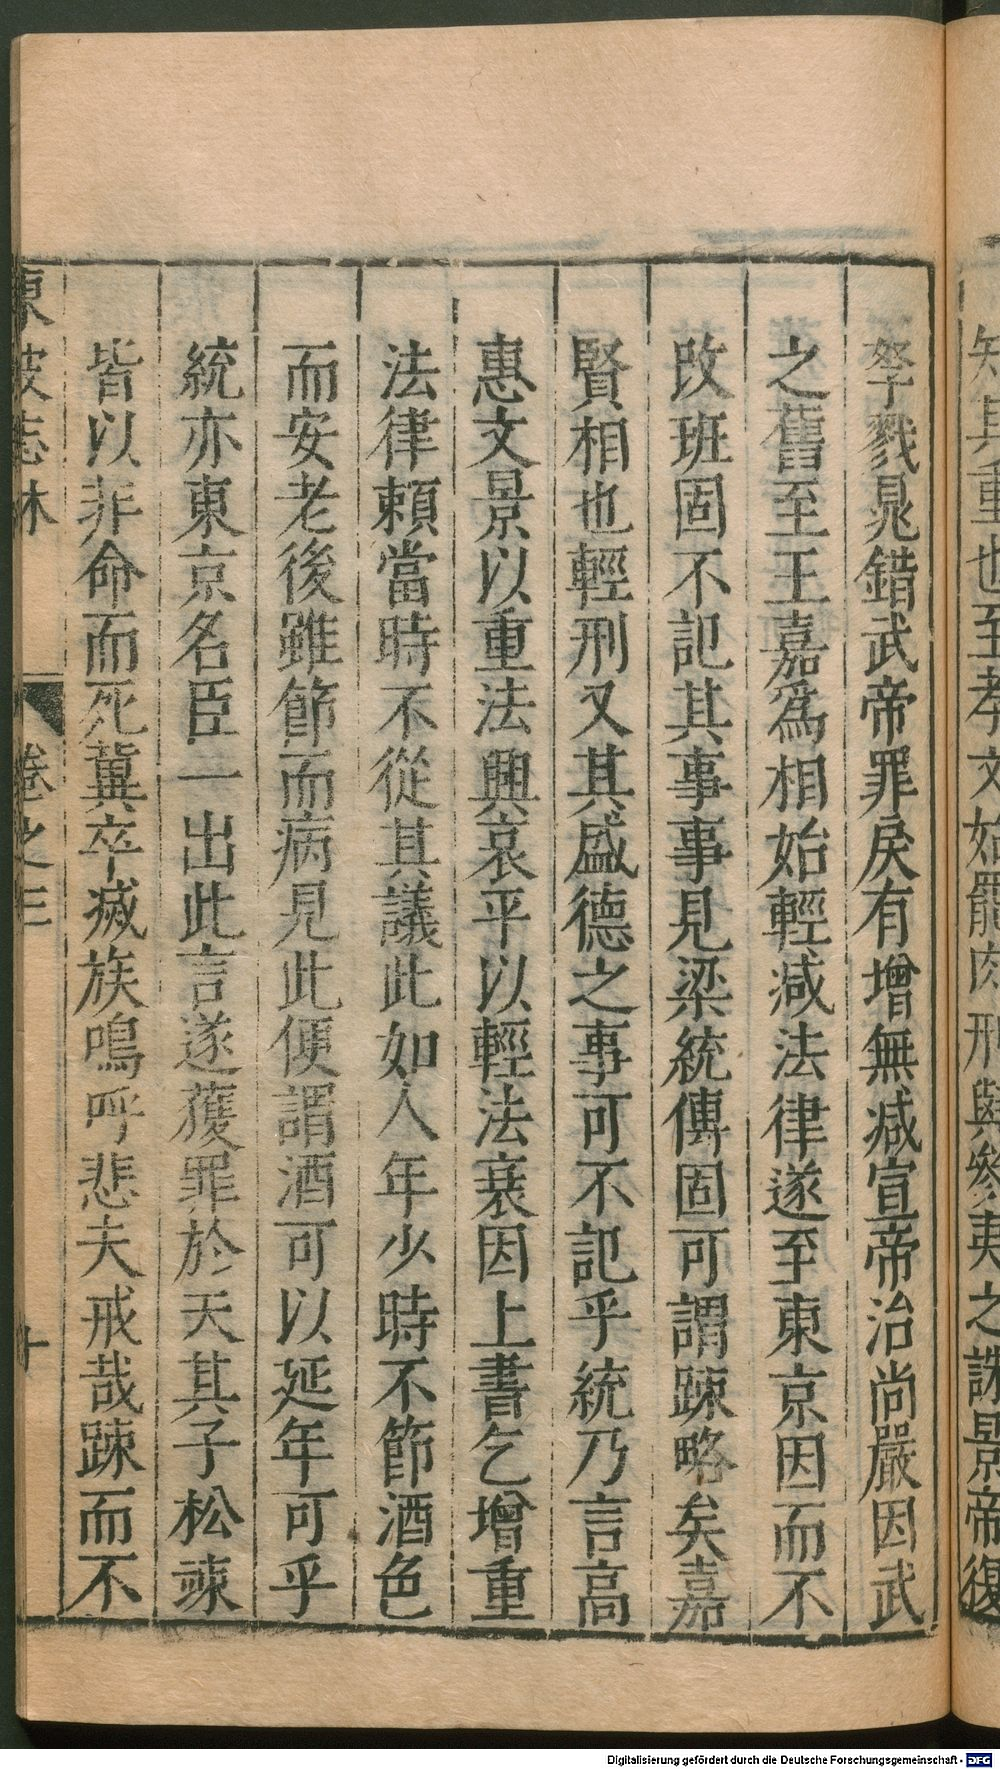 知其重也至孝文始罷肉刑與參夷之誅景帝復
孥戮晁錯武帝罪戾有增無减宣帝治尚嚴因武
之舊至王嘉爲相始輕减法律遂至東京因而不
改班固不記其事事見梁統傳固可謂踈略矣嘉
賢相也輕刑又其盛德之事可不記乎統乃言高
惠文景以重法興哀平以輕法衰因上書乞增重
法律頼當時不從其議此如人年少時不節酒色
而安老後雖節而病見此便謂酒可以延年可乎
統亦東京名臣一出此言遂獲罪於天其子松竦
皆以非命而死冀卒滅族嗚呼悲夫戒哉踈而不
東坡志林 卷之三 十
Digitalisierung gefördert durch die Deutsche Forschungsgemeinschaft - DFG